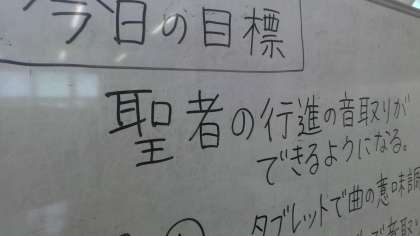 今日の目標
聖者の行進の音取りが
できるようになる。
タブレットで曲の意味調